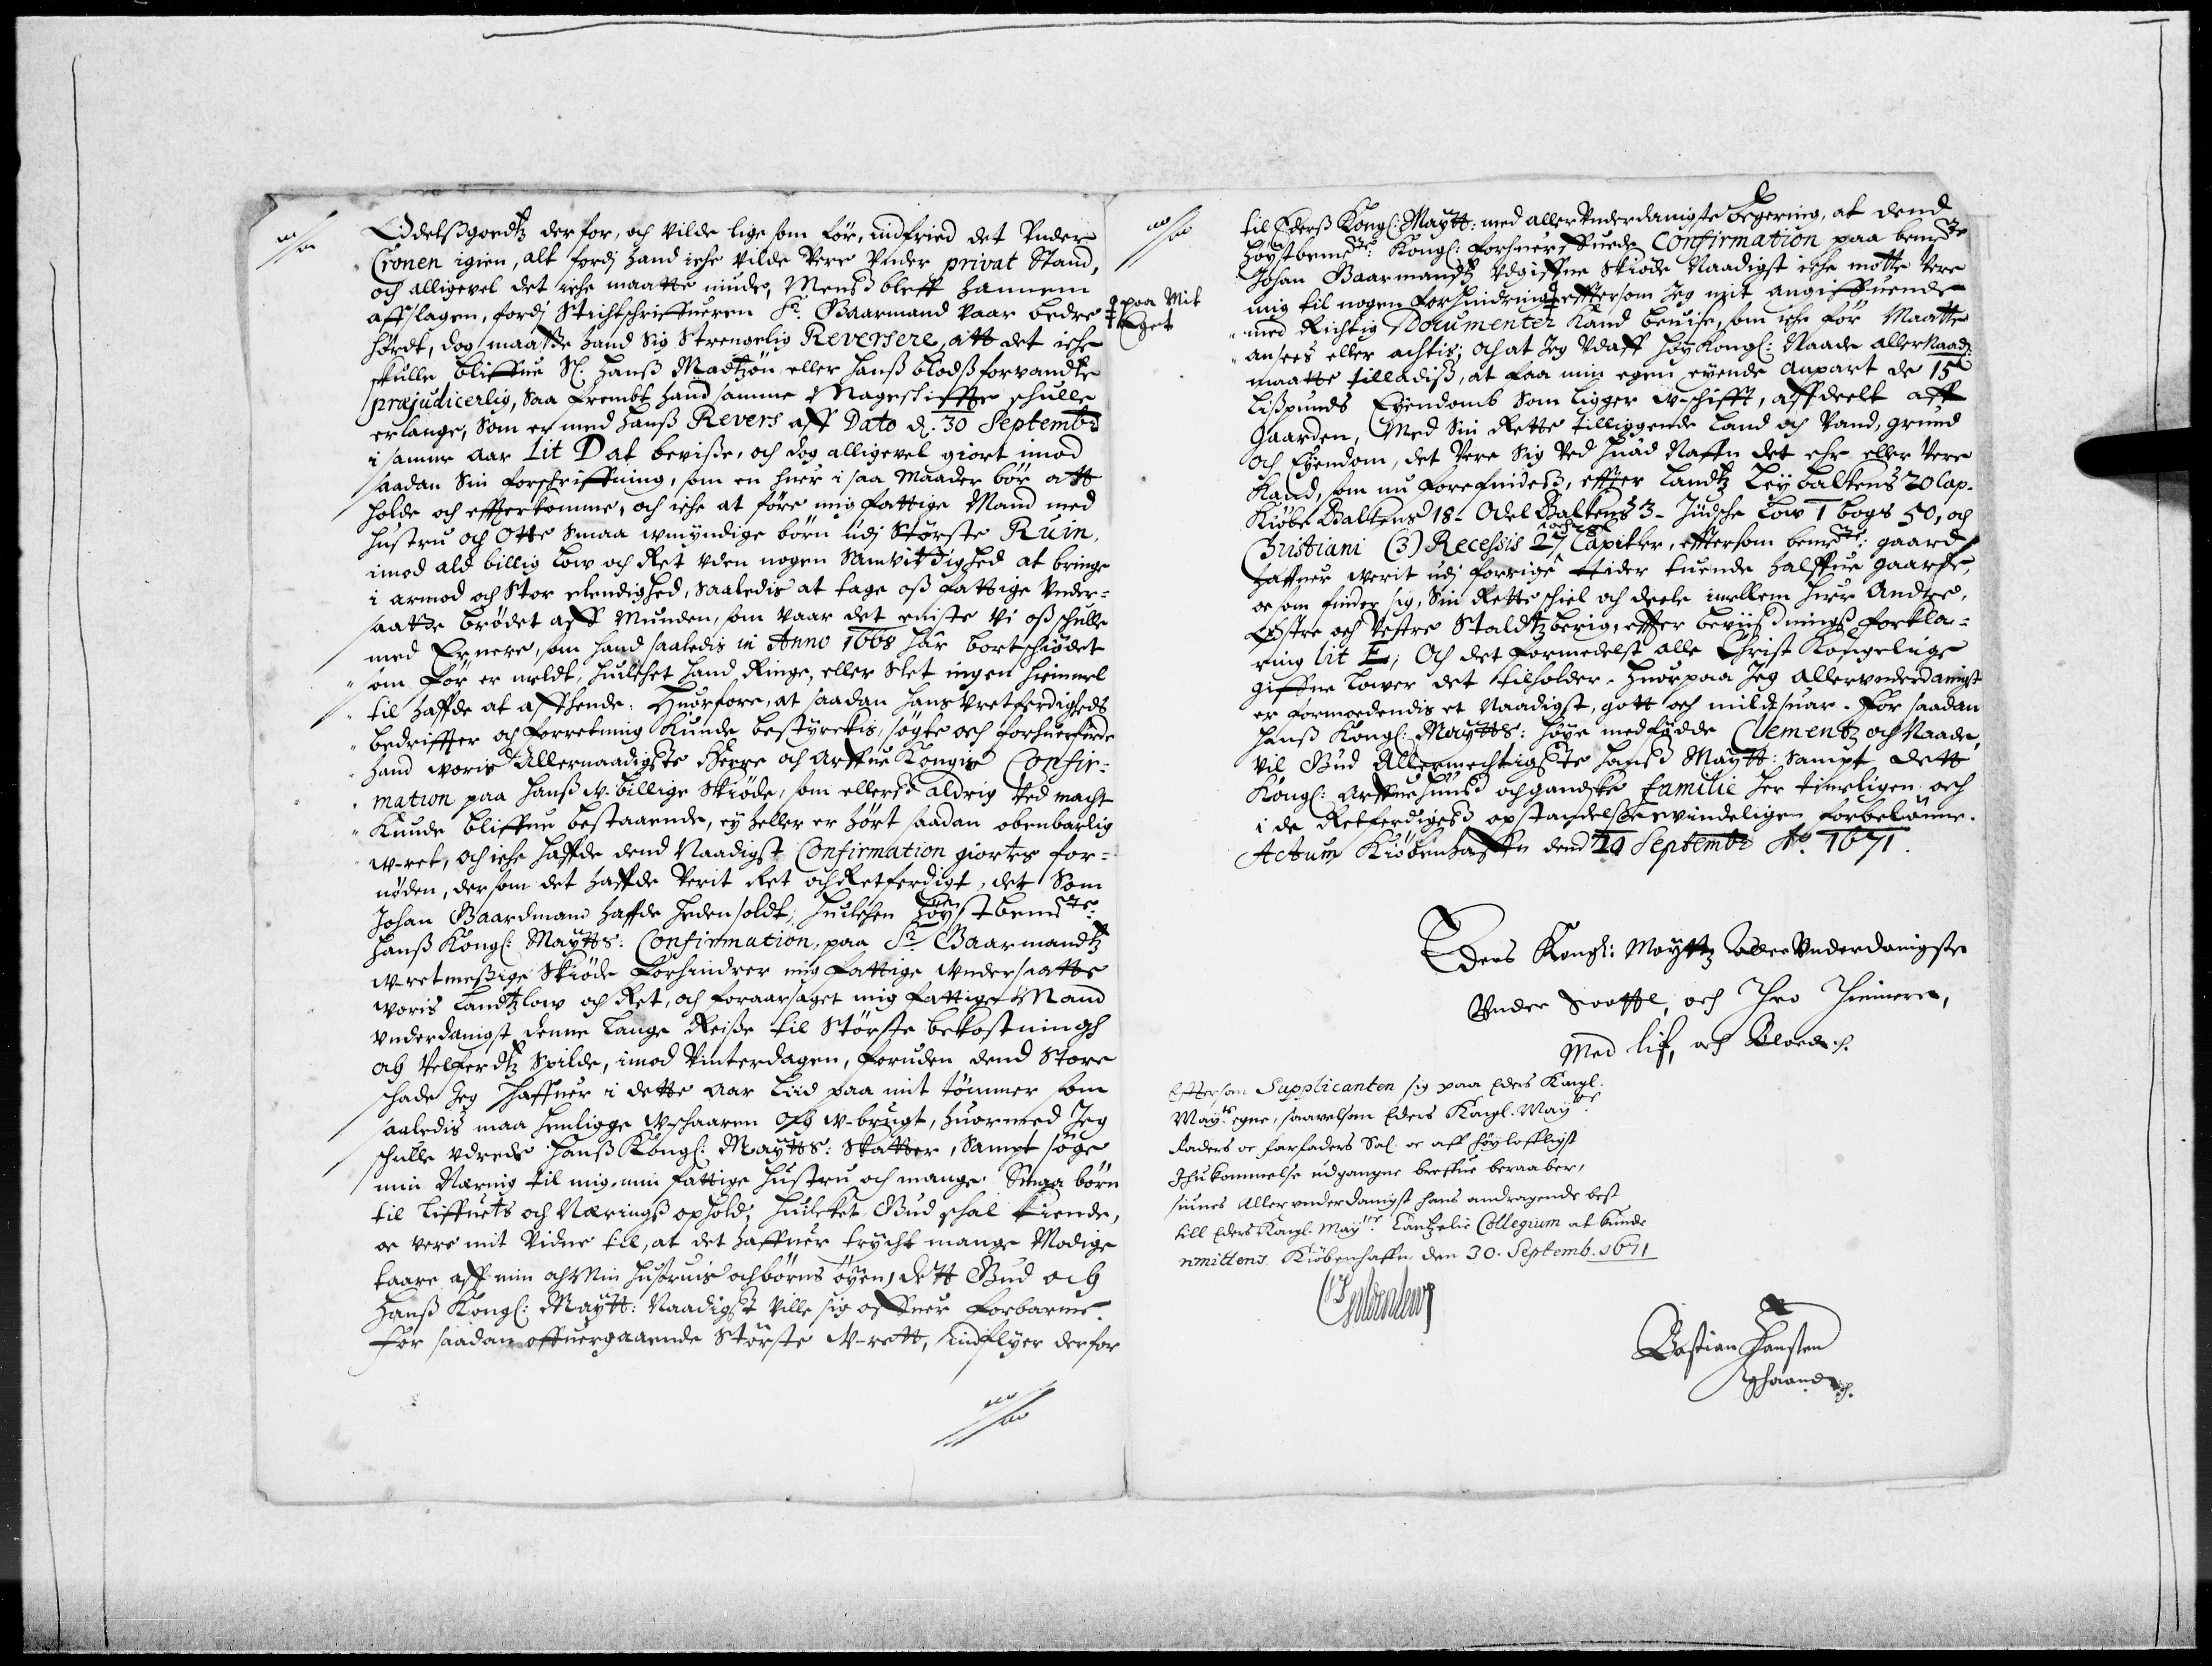 Odelsgoedtz derfor, och vilde lige som før, indfried det Vnder
Cronen igien, alt fordj hand iche vilde Vere Vnder privat Stand,
och alligevel det iche maatte niude, Mens bleff hannem
affslagen, fordj Stichtschriffueren Sr. Baarmand vaar bedre
hørdt, dog maatte hand sig Strengelig Reversere, att det iche
skulle bliffue Sl. Hansß Madtzøn eller hansß blodsforvandte
præjudicerlig, saa frembt hand samme Mageskiffte schulle
erlange, som er med hansß Revers aff Dato d. 30 Septembr
i samme aar Lit D at bevisse, och dog alligevel giort imod
saadan Sin forschriffning, som en huer i saa Maader bør att
holde och effterkomme, och iche at føre mig fattige Mand med
hustru och Otte Smaa wmyndige børn udj Største Ruin,
imod ald billig Low och Ret vden nogen Samvittighed at bringe
i armod och Stor elendighed, saaledis at tage oss fattige Vnder-
saatte brødet aff Munden, som vaar det eniste Vi oss schulle
med Ernere, som hand saaledis in Anno 1668 har bortschiødet
som før er meldt, huilchet hand Ringe, eller Slet ingen hiemmel
til haffde at affhende. Huorfore, at saadan hans Vretferdigheds
bedriffter och forretning Kunde bestyrckis, søgte och forhuerfuede
hand woris Allernaadigste Herre och Arffue Kongis Confir-
mation paa hansß w-billige Skiøde, som ellers aldrig Ved macht
Kunde bliffue bestaaende, ey heller er hørt saadan obenbarlig
w-ret, och iche haffde dend Naadigst Confirmation giortes for-
nøden, dersom det haffde Verit Ret och Retferdigt, det Som
Johan Baardmand haffde hedensoldt; huilchen høystbemte:
Hansß Kongl: Maytts: Confirmation, paa Sr. Baarmandtz
w-retmessige Skiøde forhindrer mig fattige Vndersaatte
woris Landtzlow och Ret, och foraarsaget mig fattige Mand
vnderdanigst denne lange Reisse til Største bekostningh
och Velferdtz Spilde, imod Vinterdagen, foruden dend Store
schade Jeg haffuer i dette aar liid paa mit tømmer som
saaledis maa henligge w-schaaren och w-brugt, huormed Jeg
schulle vdrede Hansß Kongl: Maytts: Skatter, Sampt søge
min Næring til mig, min fattige hustru och mange Smaa børn
til Liffuets och Næringsß ophold; huilchet Gud schal kiende,
oc vere mit Vidne til, at det haffuer trycht mange Modige
taare aff min och Min Hustruis och børns øyen, dett Gud och
Hansß Kongl: Maytt: Naadigst ville sig offuer forbarme.
For saadan offuergaaende Største w-rett, Indflyer derfor
til Eders Kongl: Maytt: med aller Vnderdanigste begering, at dend
høystbemte: Kongl: forhuerffuede Confirmation paa bemte
Johan Baarmandtz vdgiffne Skiøde Naadigst iche motte Vere
mig til nogen forhindring effter som Jeg mit angiffuende
paa Mit
Eget
med Richtig Documenter Kand beuise, som iche før Maatte
ansees eller achtis; och at Jeg vdaff høy Kongl: Naade aller Naad:
maatte tilladis, at faa min egen eyende Anpart de 15
Lisspunds Eyendomb som ligger w-schifft, affdeelt aff
Gaarden, Med Sin Rette tilliggende Land och Vand, grund
och Eyendom, det Vere Sig Ved huad Naffn det ehr eller Vere
Kand, som nu forefindes, effter Landtz Ley baltens 20 Cap.
Kiøbe Baltens 18 - Odel Baltens 3 - Jydsche Low 1 bogs 50, och
Christiani (3) Recessis 27 Capiter, effter som bemte: gaard
haffuer werit udj forrige tider tuende halffue gaarde,
oc som finder sig, Sin Rette schiel och deele imellem huer Andre,
Østre och Vestre Staldtzberig, effter beviisningsß forkla-
ring Lit E; Och det formedelst alle Christ Kongelige
giffne Lower det tilholder. Huorpaa Jeg allervnderdanigst
er formoedendis et Naadigst, gott och mildt suar. For saadan
Hansß Kongl: Maytts: høye medfødde Clementz och Naade,
vil Gud Allermechtigste Hans Maytt: Sampt dett
Kongl: Arffuehuus och gandske familie her timeligen och
i de Retferdiges opstandelse ewindeligen forbelønne.
Actum Kiøbenhaffn dend 29 Septembr Ao. 1671.
Eders Kongl: Mayttz allervnderdanigste
Vnder Saatte, och Thro Thienere,
Med lif, och Bloed.
Effter som Supplicanten sig paa Eders Kongl.
Mayts. egne, saavelsom Eders Kongl. Mayts.
Faders oc farfaders Sal. oc aff høyloffligst
Ihukommelse udgangne breffue beraaber,
siunes Allervnderdanigst hans andragende best
till Eders Kongl. Mayts. Cantzelie Collegium at kunde
remitteris. Kiøbenhaffn den 30. Septemb. 1671
Gyldenlew
Bastian Hansten